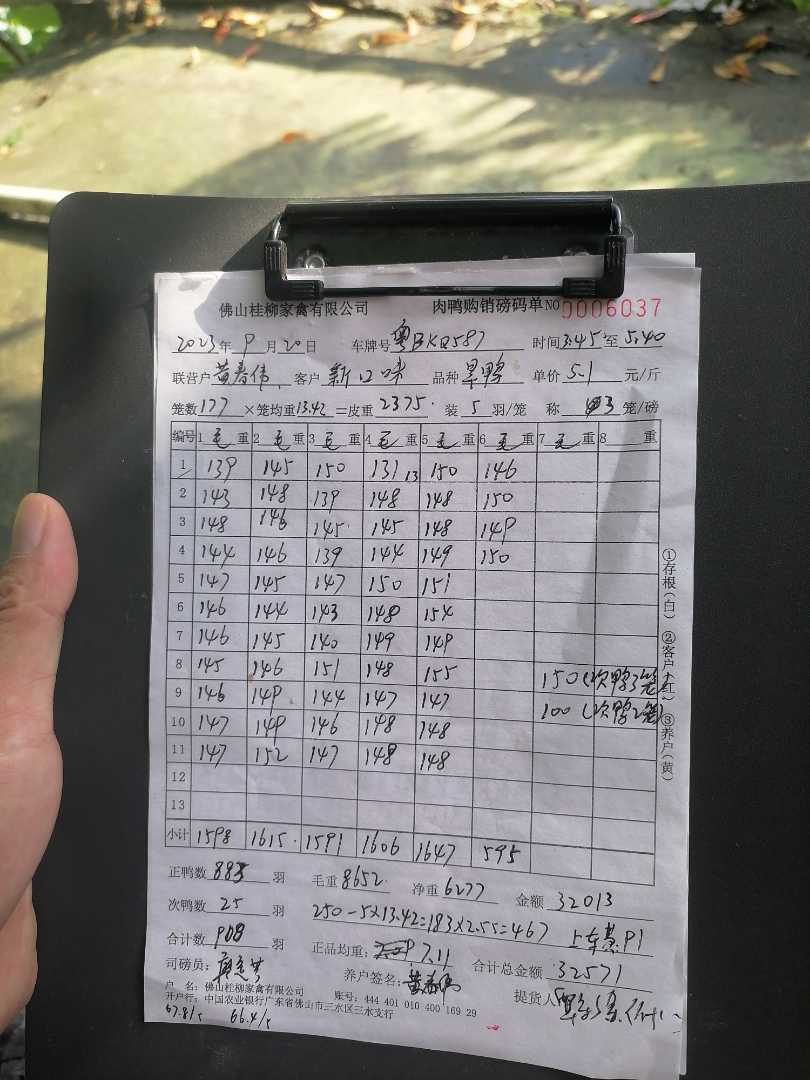 佛山桂柳家禽有限公司 肉鸭购销磅码单 NO 0006037
2023年 9月20日 车牌号 粤BKQ587 时间3.45至5.40
联营户 黄春伟 客户 新口味 品种 旱鸭 单价 5.1 元/斤
笼数 177 ×笼均重13.42 =皮重 2375. 装 5 羽/笼 称 3 笼/磅
编号 1 毛 重 2 毛 重 3 毛 重 4 毛 重 5 毛 重 6 毛 重 7 毛 重 8 重
1 139 145 150 131 13 150 146
2 143 148 139 148 148 150
3 148 146 145. 145 148 149
4 144 146 139 144 149 150
5 147 145 147 150 151
6 146 144 143 148 154
7 146 145 140 149 149
8 145 146 151 148 155 150(次鸭3笼)
9 146 149 144 147 147 100(次鸭2笼)
10 147 149 146 148 148
11 147 152 147 148 148
12
13
小计 1598 1615. 1591 1606 1647 595
正鸭数 883 羽 毛重 8652. 净重 6277 金额 32013
次鸭数 25 羽 250-5×13.42=183×2.55=467 上车费:91
合计数 908 羽 正品均重: 7.11 合计总金额 32571
司磅员: 养户签名: 黄春伟 提货人
户 名: 佛山桂柳家禽有限公司 账号: 444 401 010 400 169 29
开户行: 中国农业银行广东省佛山市三水区三水支行
67.8/5 66.4/5
①存根(白) ②客户(红) ③养户(黄)